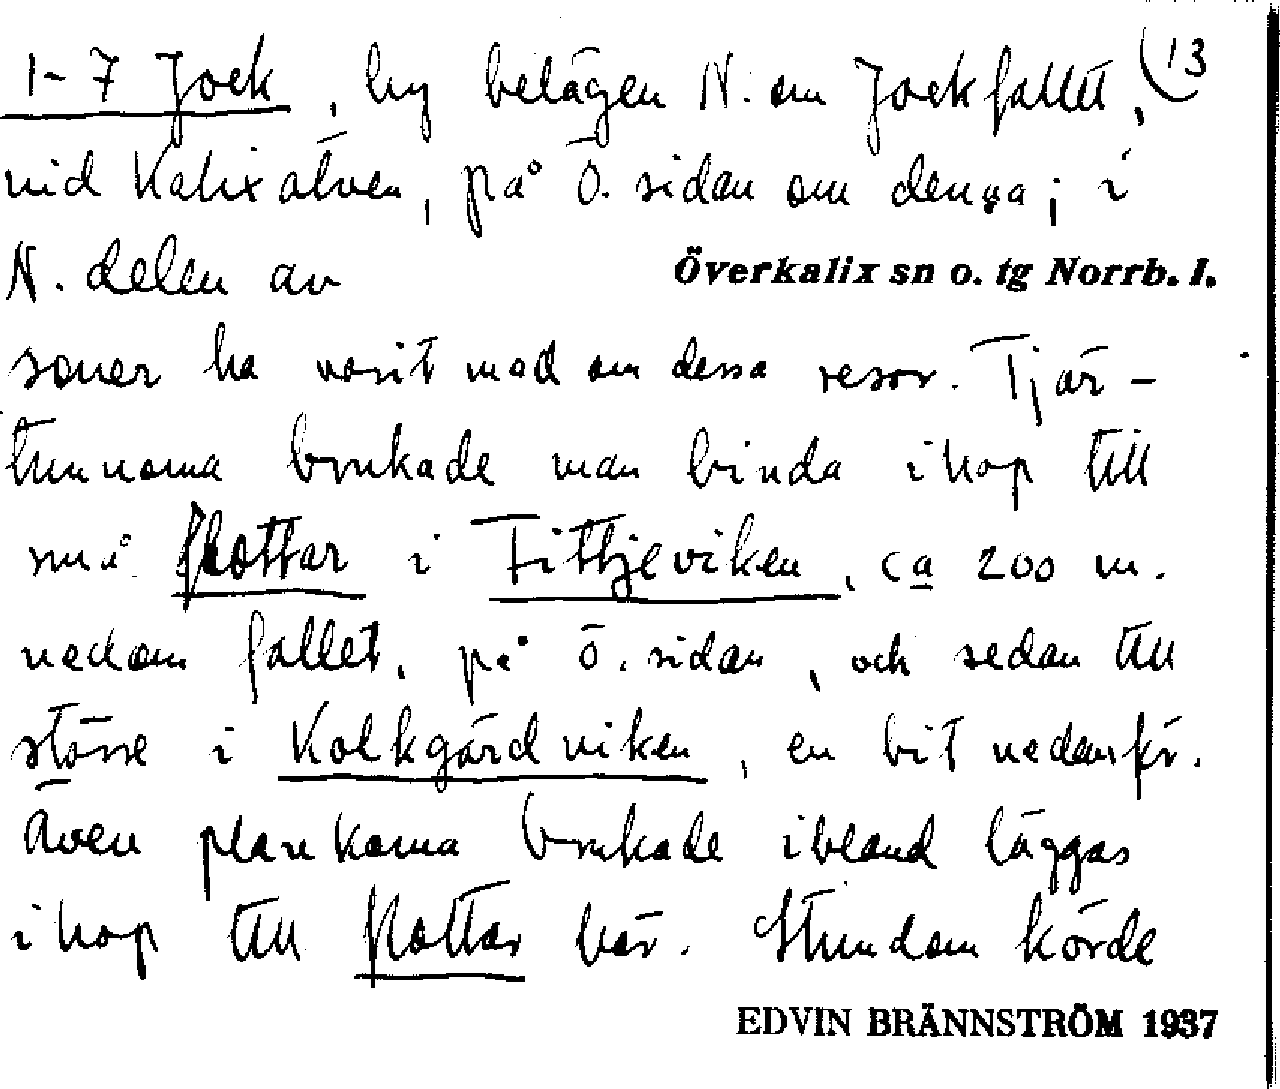 1-7 Jock, by belägen N. om Jockfallet, 13
vid Kalixälven, på Ö. sidan om denna; i
N. delen av Överkalix sn o. tg Norrb. l.
soner ha varit med om dessa resor. Tjär-
tunnorna brukade man binda ihop till
små flottar i Fittjeviken, ca 200 m.
nedom fallet, på ö. sidan, och sedan till
större i Kolkgårdviken, en bit nedanför.
Även plankorna brukade ibland läggas
ihop till flottar här. Stundom körde
EDVIN BRÄNNSTRÖM 1937